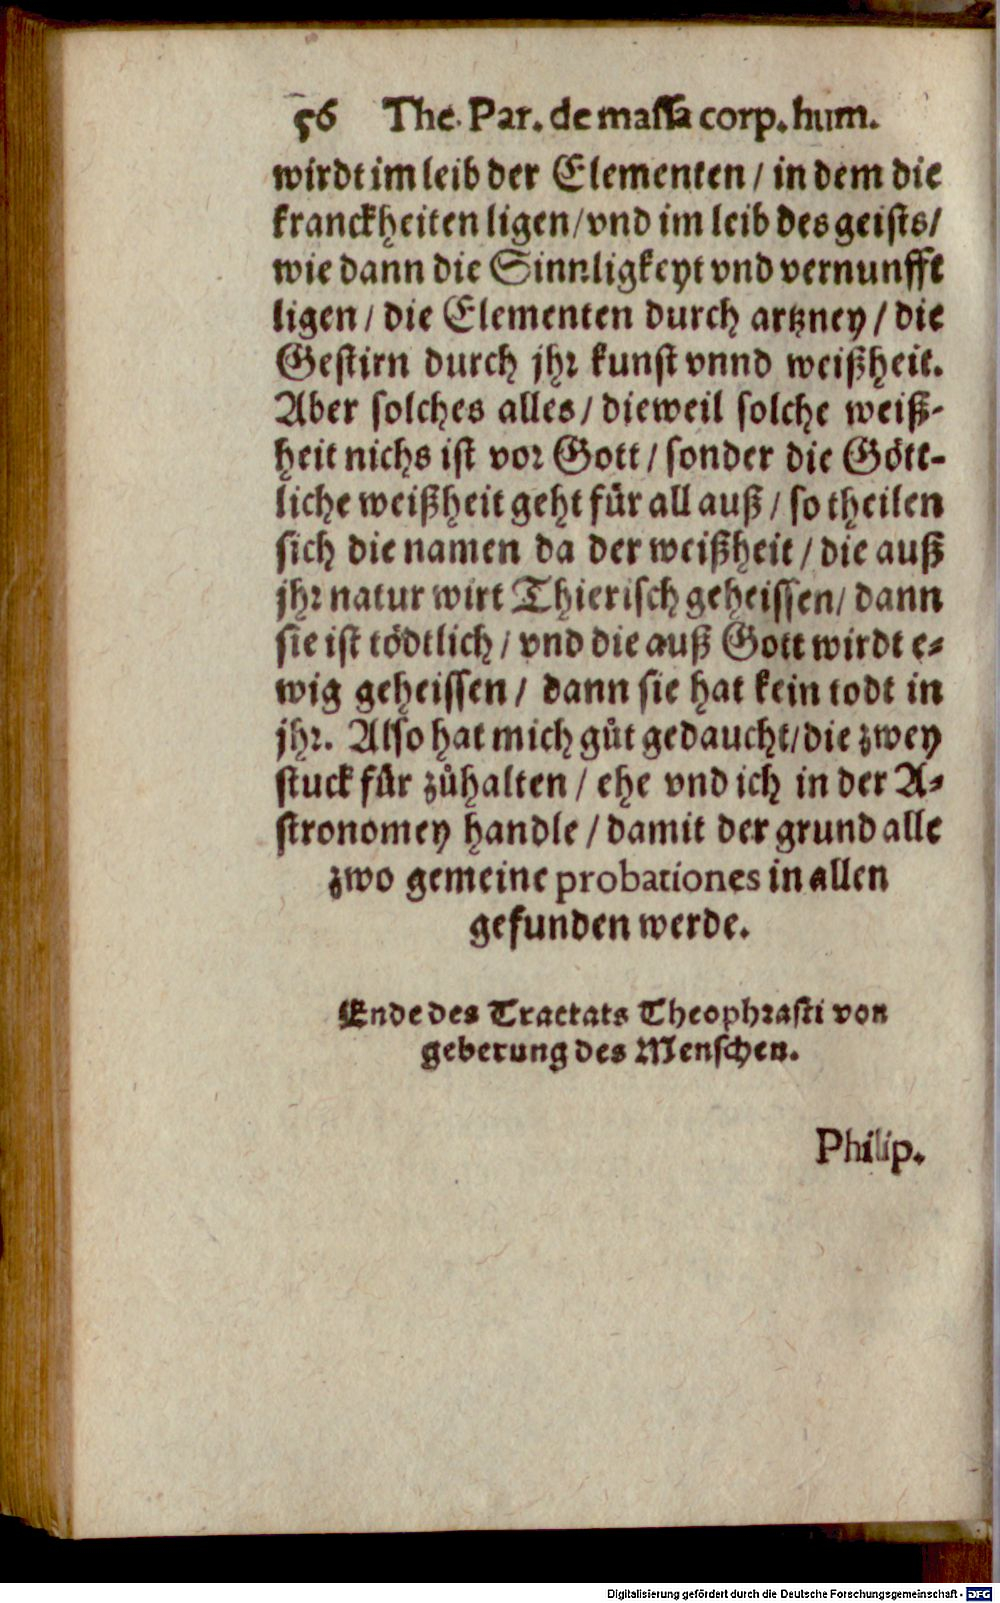 56 The. Par. de massa corp. hum.
wirdt im leib der Elementen / in dem die
kranckheiten ligen / vnd im leib des geists /
wie dann die Sinnligkeyt vnd vernunfft
ligen / die Elementen durch artzney / die
Gestirn durch jhr kunst vnnd weißheit.
Aber solches alles / dieweil solche weiß-
heit nichs ist vor Gott / sonder die Gött-
liche weißheit geht für all auß / so theilen
sich die namen da der weißheit / die auß
jhr natur wirt Thierisch geheissen / dann
sie ist tödtlich / vnd die auß Gott wirdt e-
wig geheissen / dann sie hat kein todt in
jhr. Also hat mich gůt gedaucht / die zwey
stuck für zůhalten / ehe vnd ich in der A-
stronomey handle / damit der grund alle
zwo gemeine probationes in allen
gefunden werde.
Ende des Tractats Theophrasti von
geberung des Menschen.
Philip.
Digitalisierung gefördert durch die Deutsche Forschungsgemeinschaft - DFG